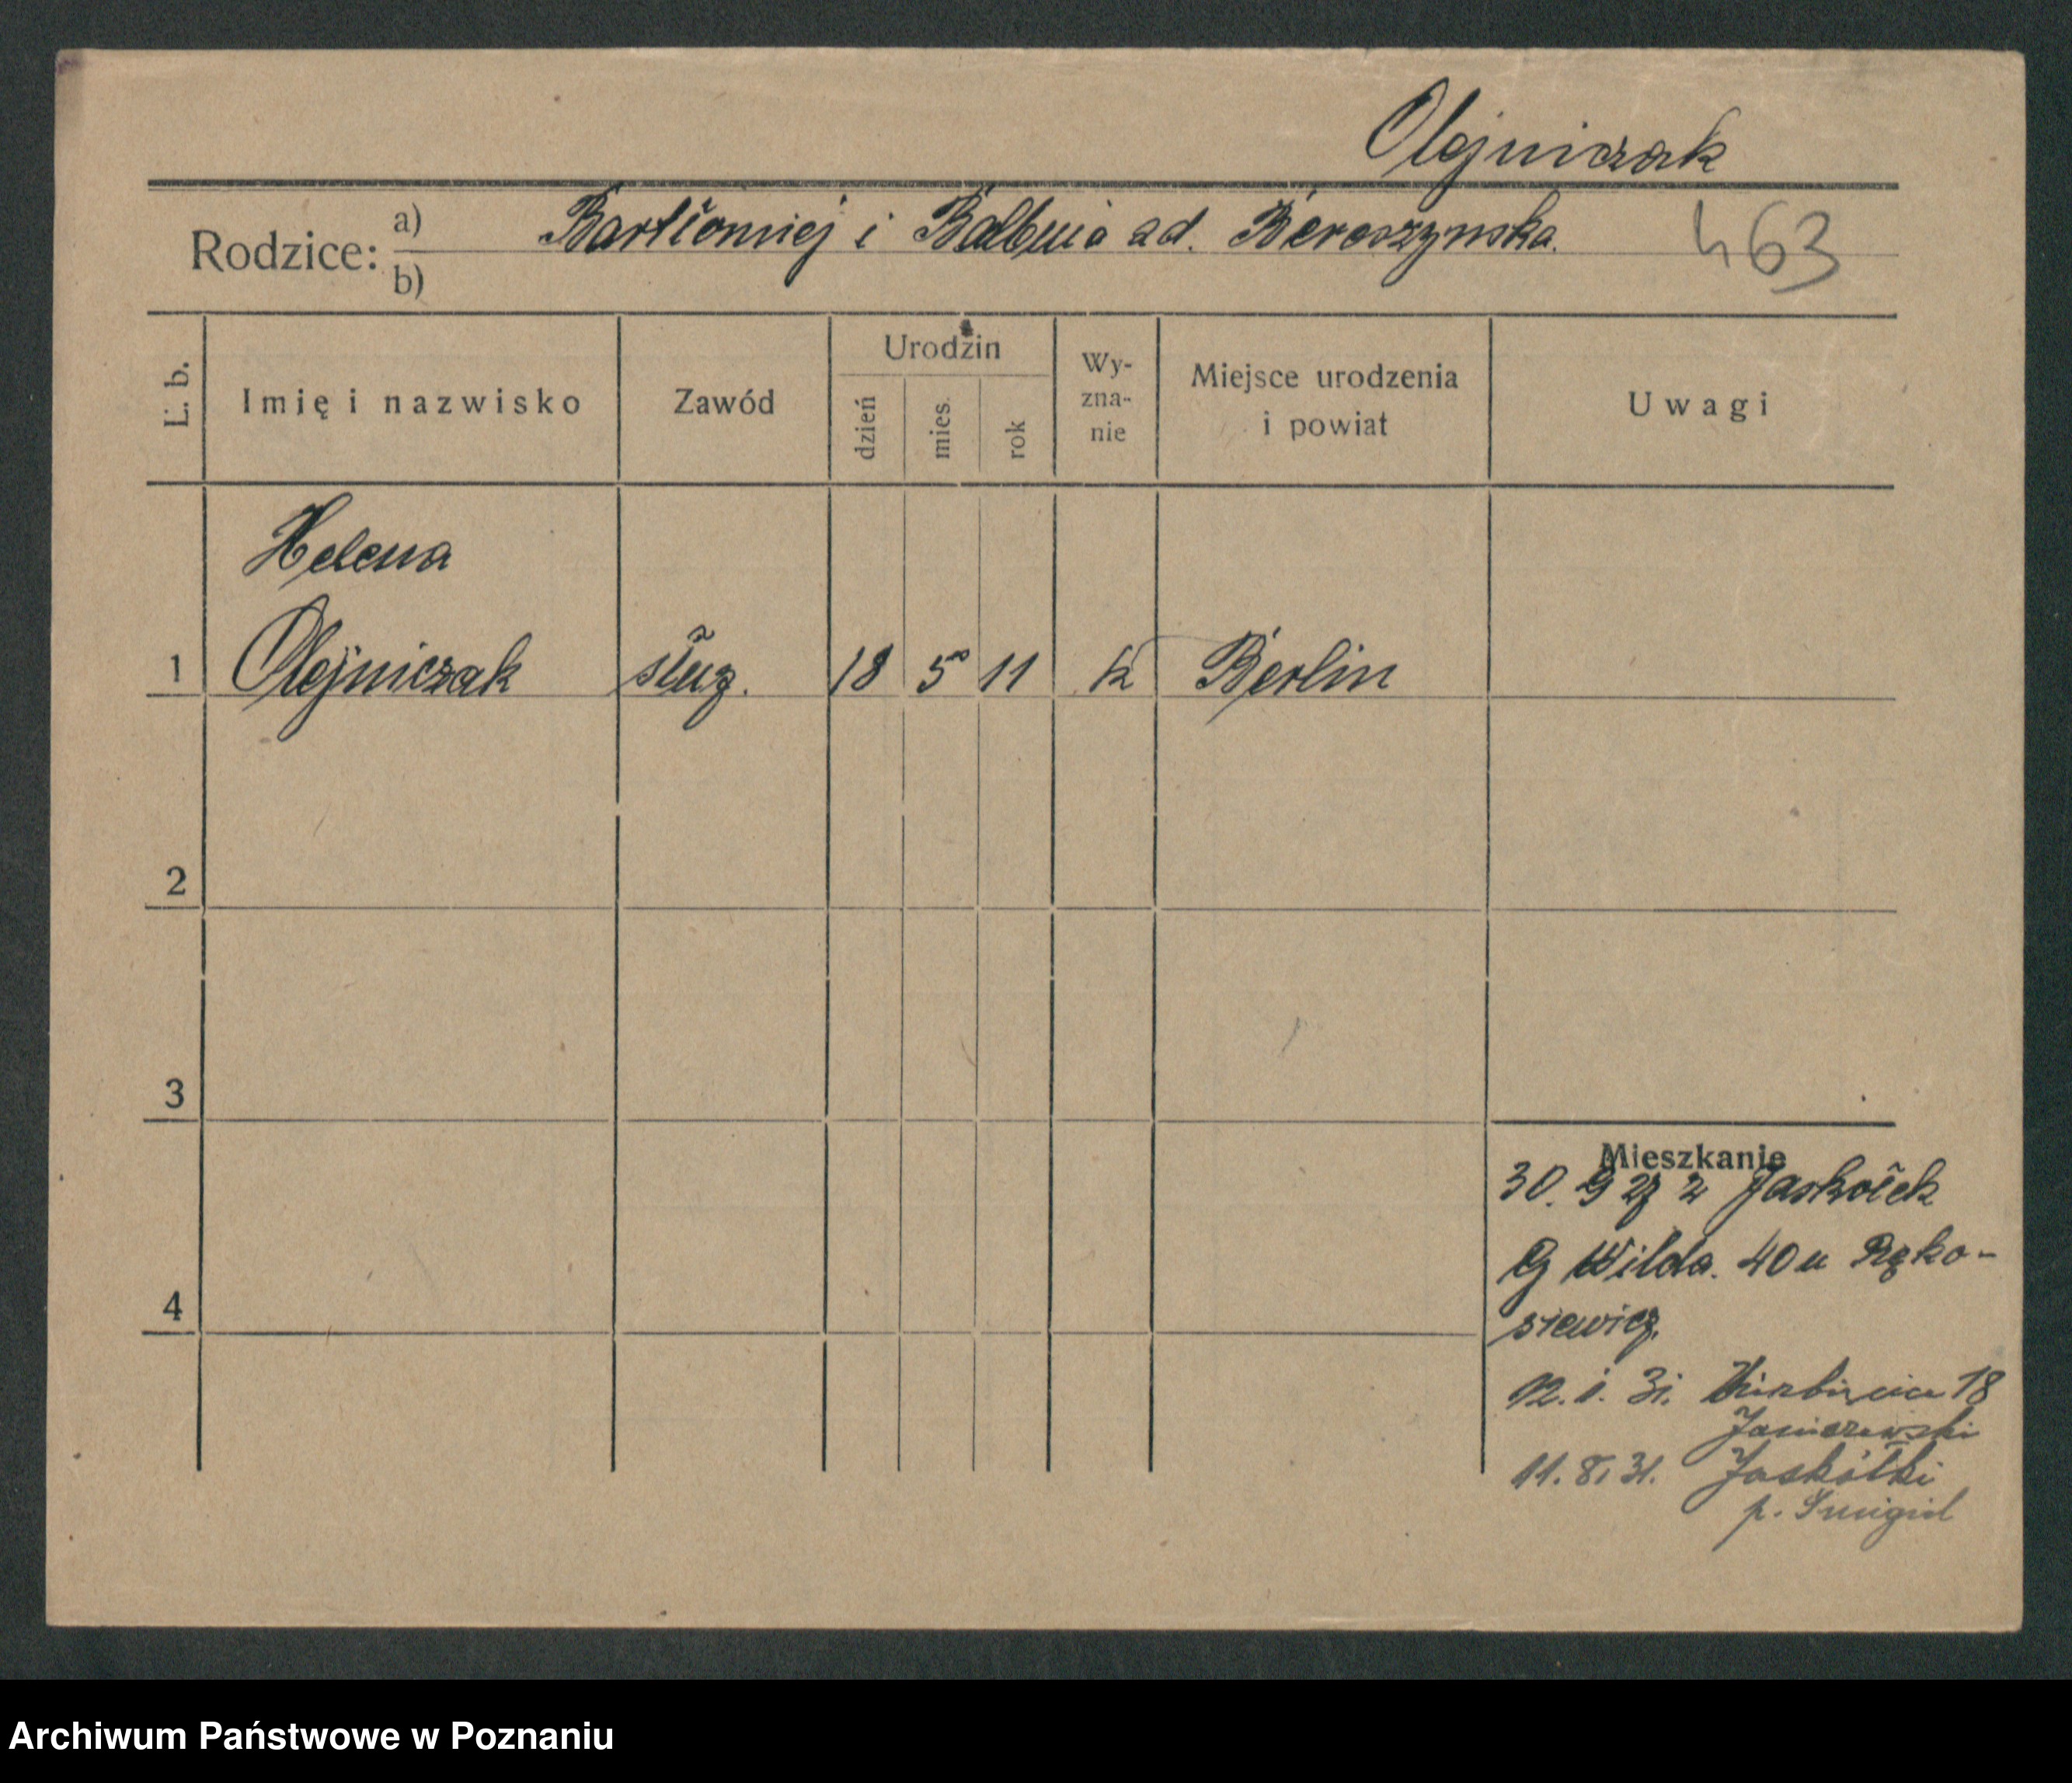 Olejniczak
Rodzice: a) Bartłomiej i Balbina zd. Beroszynska.
b)
463
L. b.
Imię i nazwisko
Zawód
Urodzin
dzień
mies.
rok
Wy-
zna-
nie
Miejsce urodzenia
i powiat
Uwagi
Helena
1 Olejniczak służ. 18 5 11 k Berlin
2
3
4
Mieszkanie
30. 9 29 z Jaskółek
G Wilda. 40 u Ręko-
siewicz.
12. 1. 31. 18
11. 8. 31. Jaskółki
p. Śmigiel
Archiwum Państwowe w Poznaniu